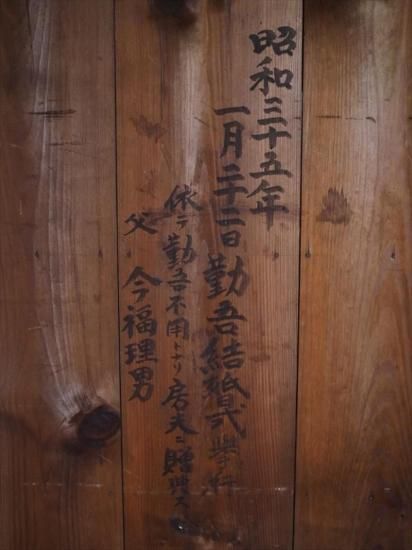 昭和三十五年
一月二十二日勤吾結婚式
依テ勤吾不用トナリ房夫ニ贈典ス
父 今福理男